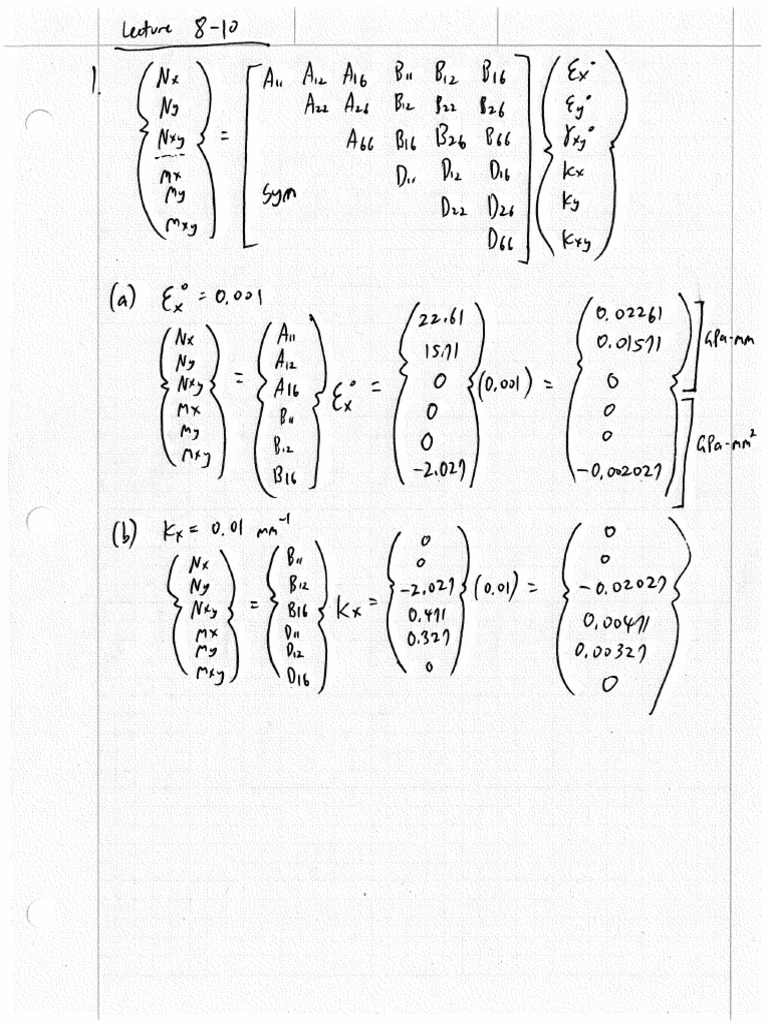 Lecture 8-10
1.
{Nx Ny Nxy Mx My Mxy} = [A11 A12 A16 B11 B12 B16
A22 A26 B12 B22 B26
A66 B16 B26 B66
D11 D12 D16
Sym D22 D26
D66] {εx° εy° γxy° Kx Ky Kxy}
(a) εx° = 0.001
{Nx Ny Nxy Mx My Mxy} = {A11 A12 A16 B11 B12 B16} εx° = {22.61 15.71 0 0 0 -2.027} (0.001) = {0.02261 0.01571 0 0 0 -0.002027} GPa-mm GPa-mm²
(b) Kx = 0.01 mm⁻¹
{Nx Ny Nxy Mx My Mxy} = {B11 B12 B16 D11 D12 D16} Kx = {0 0 -2.027 0.471 0.327 0} (0.01) = {0 0 -0.02027 0.00471 0.00327 0}